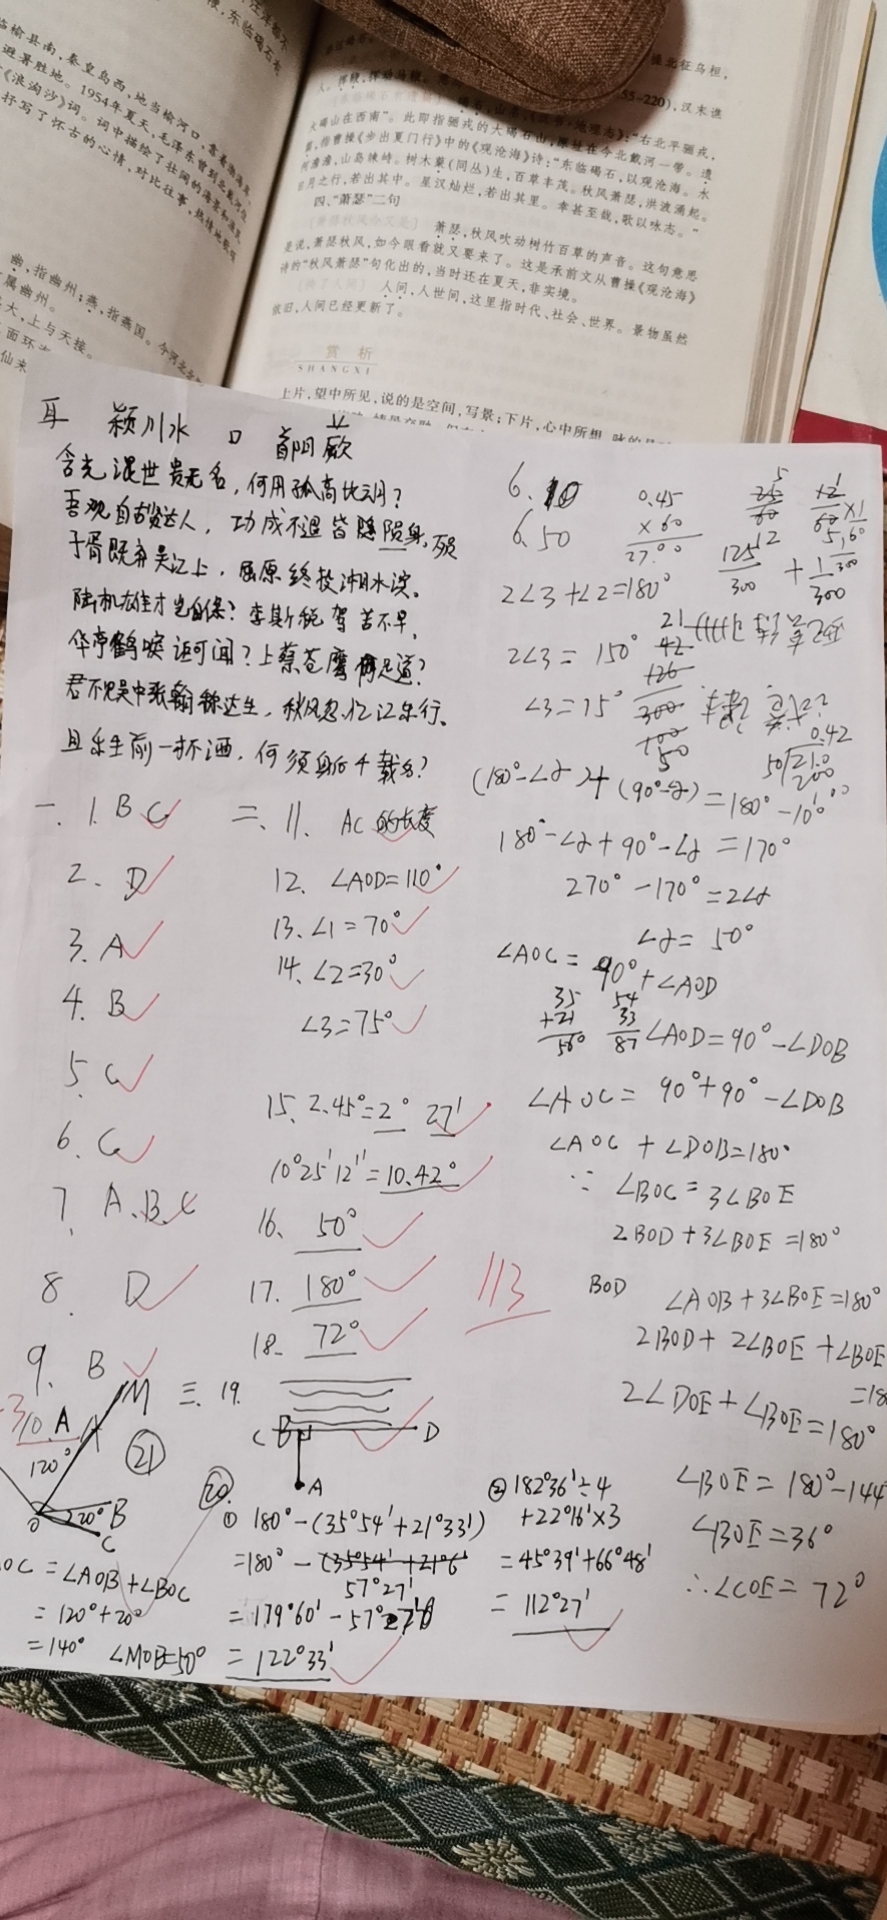 临榆县南,秦皇岛西,地当榆河口,靠着渤海湾,
避暑胜地。1954年夏天,毛泽东曾到北戴河住
《浪淘沙》词。词中描绘了壮阔的海景和渔民
行写了怀古的心情,对比往事,热情地歌颂
幽,指幽州;燕,指燕国。今河北
属幽州。
大,上与天接。
面环
仙来
操北征乌桓,
55-220),汉末谯
大碣山在西南”。此即指骊戎的大碣石山,原址在今北戴河一带。遗
篇,指曹操《步出夏门行》中的《观沧海》诗:“东临碣石,以观沧海。水
何澹澹,山岛竦峙。树木藂(同丛)生,百草丰茂。秋风萧瑟,洪波涌起。
日月之行,若出其中。星汉灿烂,若出其里。幸甚至哉,歌以咏志。”
四、“萧瑟”二句
萧瑟,秋风吹动树竹百草的声音。这句意思
是说,萧瑟秋风,如今眼看就又要来了。这是承前文从曹操《观沧海》
诗的“秋风萧瑟”句化出的,当时还在夏天,非实境。
人间,人世间,这里指时代、社会、世界。景物虽然
依旧,人间已经更新了。
赏析
SHANGXI
上片,望中所见,说的是空间,写景;下片,心中所想
耳 颍川水 口 首阳蕨
含光混世贵无名,何用孤高比云月?
吾观自古贤达人,功成不退皆陨身。殒
子胥既弃吴江上,屈原终投湘水滨。
陆机雄才岂自保?李斯税驾苦不早。
华亭鹤唳讵可闻?上蔡苍鹰何足道?
君不见吴中张翰称达生,秋风忽忆江东行。
且乐生前一杯酒,何须身后千载名?
一、1. B C
2. D
3. A
4. B
5. C
6. C
7. A、B、C
8. D
9. B
10. A
-3
二、11. AC的长度
12. ∠AOD=110°
13. ∠1=70°
14. ∠2=30°
∠3=75°
15. 2.45°=2° 27′
10°25′12″=10.42°
16. 50°
17. 180°
18. 72°
113
三、19.
C B D
A
⑳
① 180°-(35°54′+21°33′)
=180°-(35°54′+21°6′
57°27′
=179°60′-57°27′
=122°33′
② 182°36′÷4
+22°16′×3
=45°39′+66°48′
=112°27′
㉑
M
A
120°
20° B
O
C
OC=∠AOB+∠BOC
=120°+20°
=140° ∠MOB=50°
6. 10
6. 50
0.45
×60
27.00
2∠3+∠2=180°
2∠3=150°
∠3=75°
125
300
+
1
300
21
42
126
300
50
0.42
50 21.0
200
(180°-∠α)+(90°-α)=180°-10°
180°-∠α+90°-∠α=170°
270°-170°=2∠α
∠α=50°
∠AOC=90°+∠AOD
35 54
+21 33
56° 87
∠AOD=90°-∠DOB
∠AOC=90°+90°-∠DOB
∠AOC+∠DOB=180°
∵∠BOC=3∠BOE
2BOD+3∠BOE=180°
BOD
∠AOB+3∠BOE=180°
2BOD+2∠BOE+∠BOE
=18
2∠DOE+∠BOE=180°
∠BOE=180°-144
∠BOE=36°
∴∠COE=72°